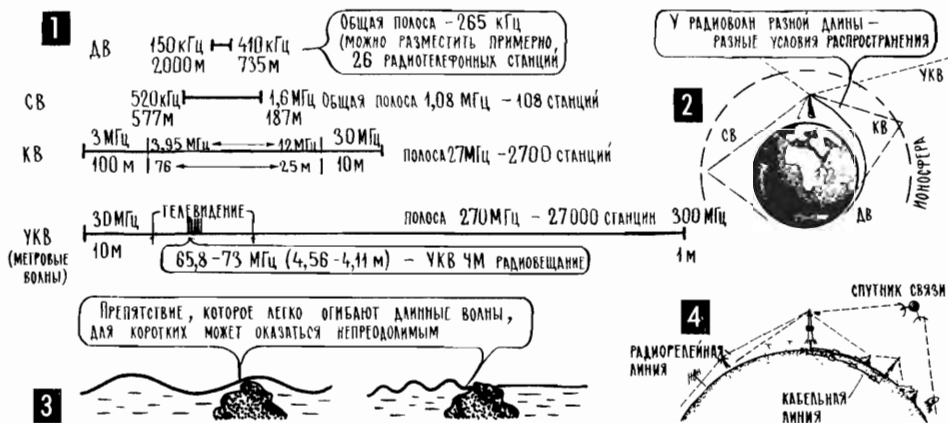 1
ДВ
150 кГц 410 кГц
2000 м 735 м
Общая полоса – 265 кГц
(можно разместить примерно
26 радиотелефонных станций
СВ
520 кГц 1,6 МГц
577 м 187 м
Общая полоса 1,08 МГц – 108 станций
КВ
3 МГц 3,95 МГц 12 МГц 30 МГц
100 м 76 25 м 10 м
полоса 27 МГц – 2700 станций
УКВ
(метровые
волны)
30 МГц телевидение полоса 270 МГц – 27000 станции 300 МГц
10 м 1 м
65,8 – 73 МГц (4,56 – 4,11 м) – УКВ ЧМ радиовещание
2
У радиоволн разной длины –
разные условия распространения
УКВ
СВ
КВ
ДВ
ионосфера
3
Препятствие, которое легко огибают длинные волны,
для коротких может оказаться непреодолимым
4
спутник связи
радиорелейная
линия
кабельная
линия